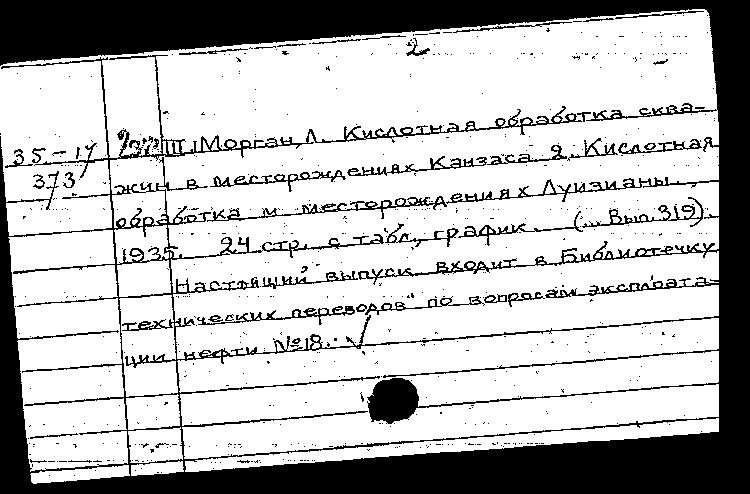 2
35-17 III. Морган, Л. Кислотная обработка сква-
373 жин в месторождениях Канзаса. 2. Кислотная
обработка м месторождениях Луизианы.
1935. 24 стр. с табл., график. (... Вып. 319).
Настоящий выпуск входит в Библиотечку
технических переводов" по вопросам эксплоата-
ции нефти №18.